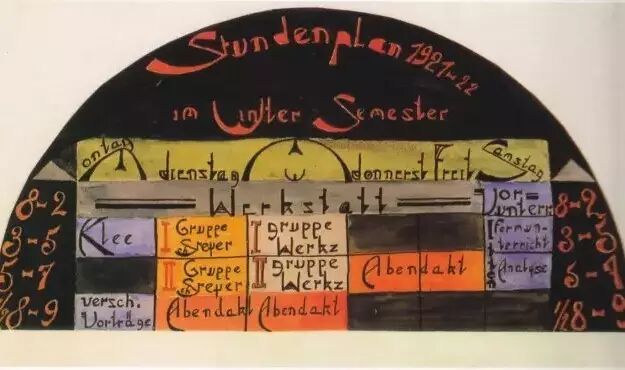 Stundenplan 1921-22
im Winter Semester
Montag dienstag M W donnerst Freit Samstag
8-2 Werkstatt Vor-unterr. 8-2
3-5 Klee I Gruppe Dreyer I gruppe Werkz Formun-terricht 3-5
5-7 II Gruppe Dreyer II gruppe Werkz Abendakt Analyse 5-7
½8-9 versch. Vorträge Abendakt Abendakt ½8-9